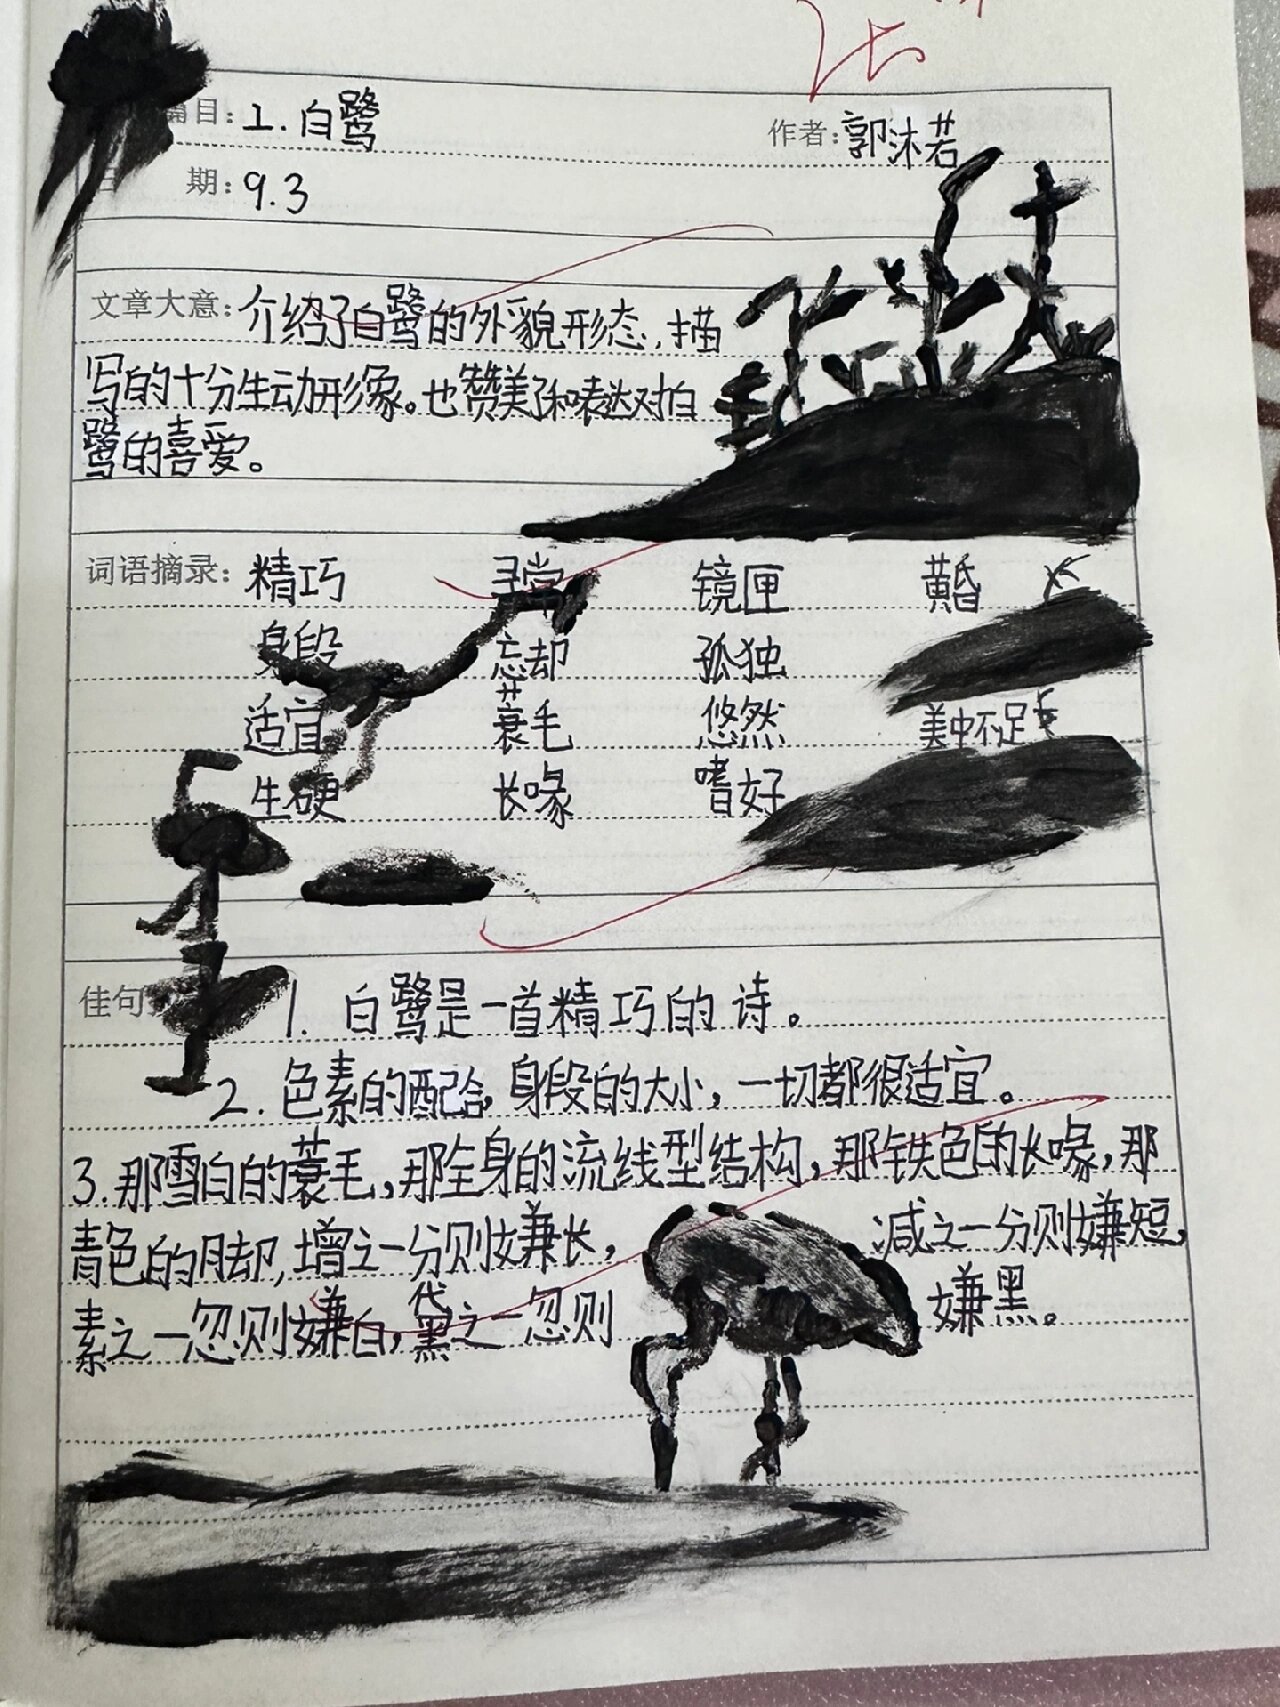 篇目：1.白鹭 作者：郭沐若
日 期：9.3
文章大意：介绍了白鹭的外貌形态，描
写的十分生动形象。也赞美了和表达对白
鹭的喜爱。
词语摘录：精巧 寻常 镜匣 黄昏
身段 忘却 孤独
适宜 蓑毛 悠然 美中不足
生硬 长喙 嗜好
佳句 1. 白鹭是一首精巧的诗。
2. 色素的配合，身段的大小，一切都很适宜。
3. 那雪白的蓑毛，那全身的流线型结构，那铁色的长喙，那
青色的脚，增之一分则嫌长， 减之一分则嫌短，
素之一忽则嫌白，黛之一忽则 嫌黑。